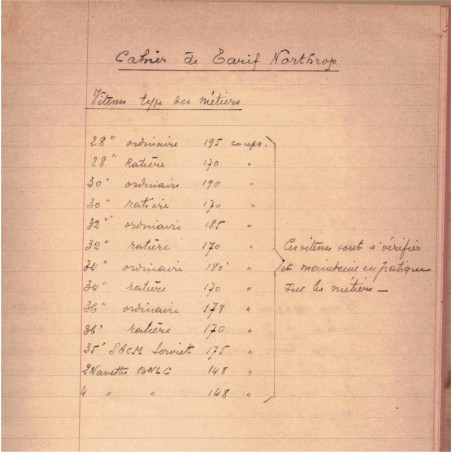 Cahier de Tarif Northrop
Vitesse type des métiers
28" ordinaire 195 coups.
28" Ratière 170 "
30" ordinaire 190 "
30" ratière 170 "
32" ordinaire 185 "
32" ratière 170 "
34" ordinaire 180 "
34" ratière 170 "
36" ordinaire 174 "
36" ratière 170 "
35" SACM 175 "
2 Navettes 148 "
4 " " 148 "
Ces vitesses sont à vérifier
et maintenir en pratique
sur les métiers —